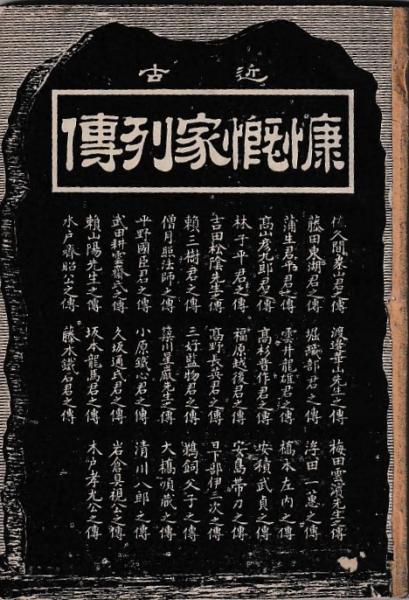 近古
慷慨家列傳
佐久間象山君之傳
藤田東湖君之傳
蒲生君平君之傳
高山彦九郎君之傳
林子平君之傳
吉田松陰先生之傳
頼三樹君之傳
僧月照法師之傳
平野國臣君之傳
武田耕雲齋氏之傳
頼山陽先生之傳
水戸齊昭公之傳
渡邊華山先生之傳
堀織部君之傳
雲井龍雄君之傳
高杉晋作君之傳
福原越後君之傳
高野長英君之傳
三好監物君之傳
簗川星巖先生之傳
小原鐵心君之傳
久坂通武君之傳
坂本龍馬君之傳
藤本鐵石君之傳
梅田雲濱先生之傳
浮田一蕙之傳
橋本左内之傳
安積武貞之傳
安島帯刀之傳
日下部伊三次之傳
鵜飼父子之傳
大橋順藏之傳
清川八郎之傳
岩倉具視公之傳
木戸孝允公之傳